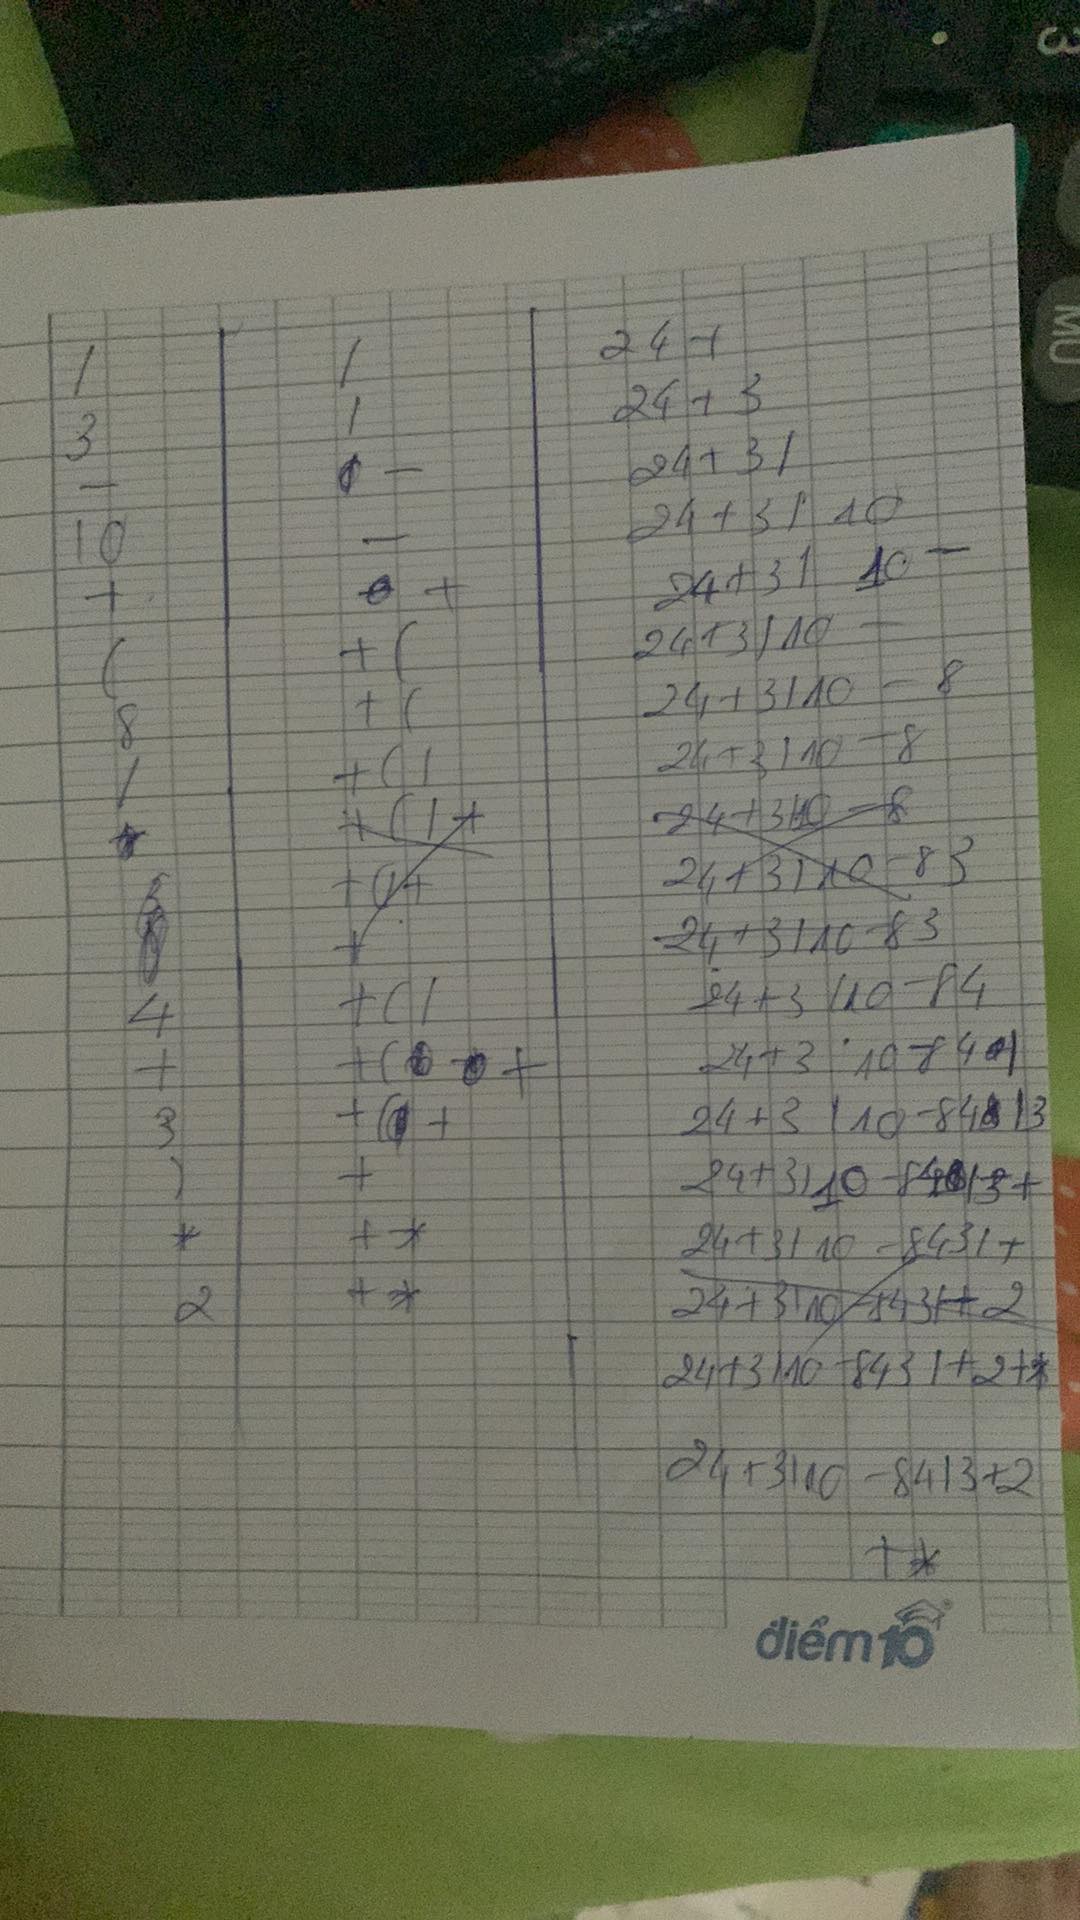 3
MU
/ / 24+
3 / 24+3
- - 24+3/
10 - 24+3/ 10
+ + 24+3/ 10-
( +( 24+3/10 -
8 +( 24+3/10 - 8
/ +(/ 24+3/10 -8
+(/+ 24+3/10 -8
+(/+ 24+3/10 -83
+ 24+3/10-83
4 +(/ 24+3/10-84
+ +( + 24+3 10-84/
3 +( + 24+3/10-84/3
) + 24+3/10-84/3+
* +* 24+3/10 -843/+
2 +* 24+3/10-843/+2
24+3/10-843/+2+*
24+3/10 -84/3+2
+*
điểm10